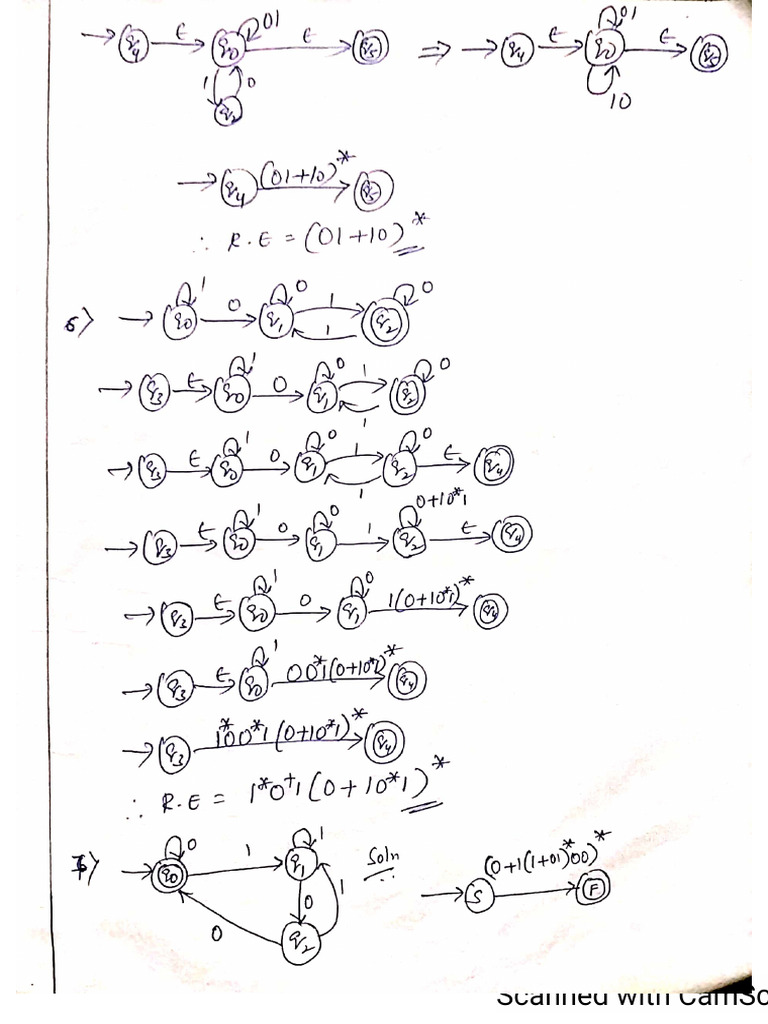 → q4 ε→ q0 01 ε→ q5 ⇒ → q4 ε→ q0 01 ε→ q5
1 0 10
q2
→ q4 (01+10)*→ q5
∴ R.E = (01+10)*
6> → q0 1 0→ q1 0 1 1 q2 0
→ q3 ε→ q0 1 0→ q1 0 1 1 q2 0
→ q3 ε→ q0 1 0→ q1 0 1 1 q2 0 ε→ q4
→ q3 ε→ q0 1 0→ q1 0 1→ q2 0+10*1 ε→ q4
→ q3 ε→ q0 1 0→ q1 0 1(0+10*1)*→ q4
→ q3 ε→ q0 1 00*1(0+10*1)*→ q4
→ q3 1*00*1(0+10*1)*→ q4
∴ R.E = 1*0+1(0+10*1)*
7> → q0 0 1→ q1 1 Soln → S (0+1(1+01)*00)*→ F
0 1
0 q2
Scanned with CamSc